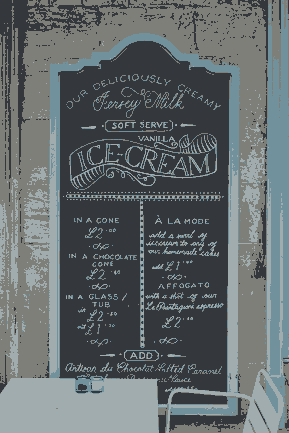 OUR DELICIOUSLY CREAMY
Jersey Milk
SOFT SERVE
VANILLA
ICE-CREAM
IN A CONE
£2
IN A CHOCOLATE
CONE
£2
IN A GLASS /
TUB
£2
£1
À LA MODE
add a swirl of
ice cream to any of
our homemade cakes
add £1
AFFOGATO
with a shot of our
espresso
£2
ADD
Artisan du Chocolat Salted Caramel
Sauce